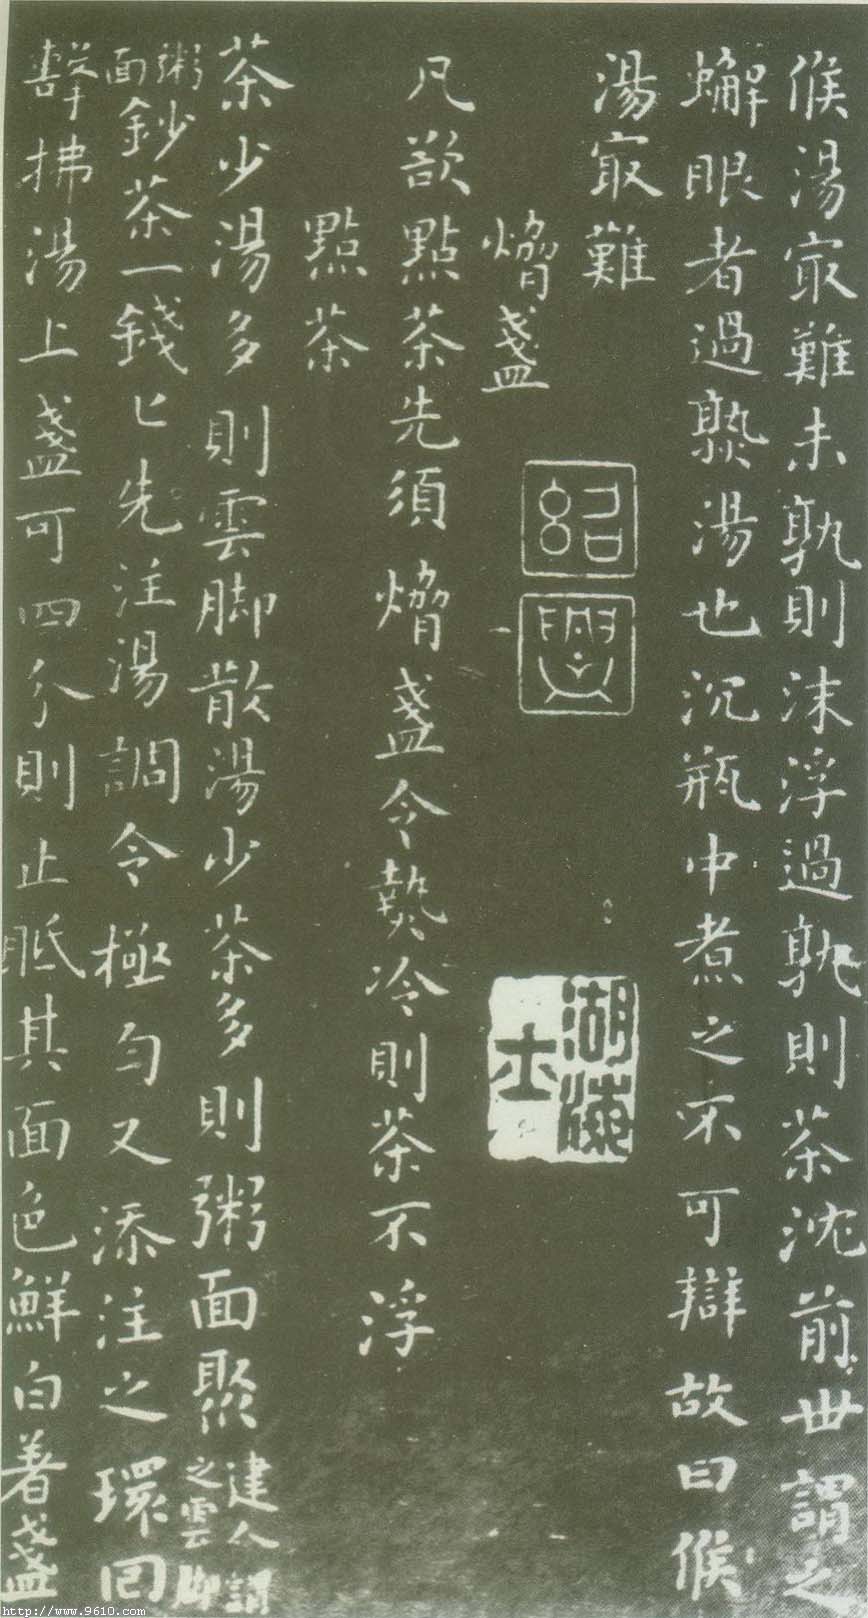 候湯㝡難未孰則沫浮過孰則茶沈前世謂之
蠏眼者過熟湯也沉瓶中煮之不可辯故曰候
湯㝡難
熁盞
紹
興
湖海
士
凡欲點茶先須熁盞令熱冷則茶不浮
點茶
茶少湯多則雲腳散湯少茶多則粥面聚建人謂
之雲腳
粥
面鈔茶一錢匕先注湯調令極勻又添注之環回
擊拂湯上盞可四分則止眡其面色鮮白著盞
http://www.9610.com